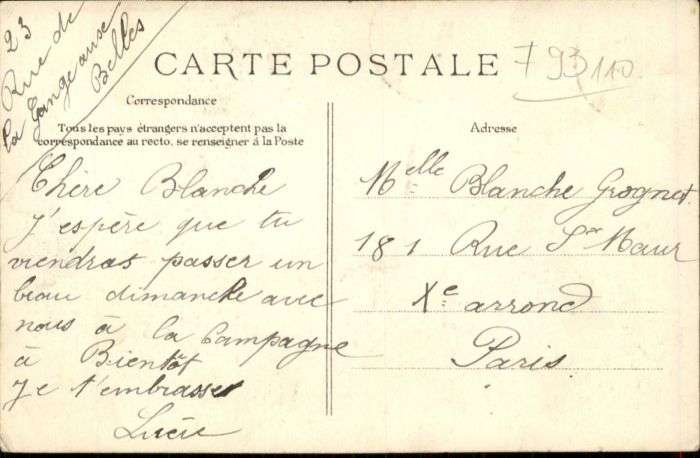 23
Rue de
la Gange aux
Belles
CARTE POSTALE
793 110
Correspondance
Tous les pays étrangers n'acceptent pas la
correspondance au recto, se renseigner à la Poste
Adresse
Chère Blanche
J'espère que tu
viendras passer un
beau dimanche avec
nous à la Campagne
à Bientôt
Je t'embrasse
Lucie
Melle Blanche Grognet
181 Rue St Maur
Xe arrond
Paris